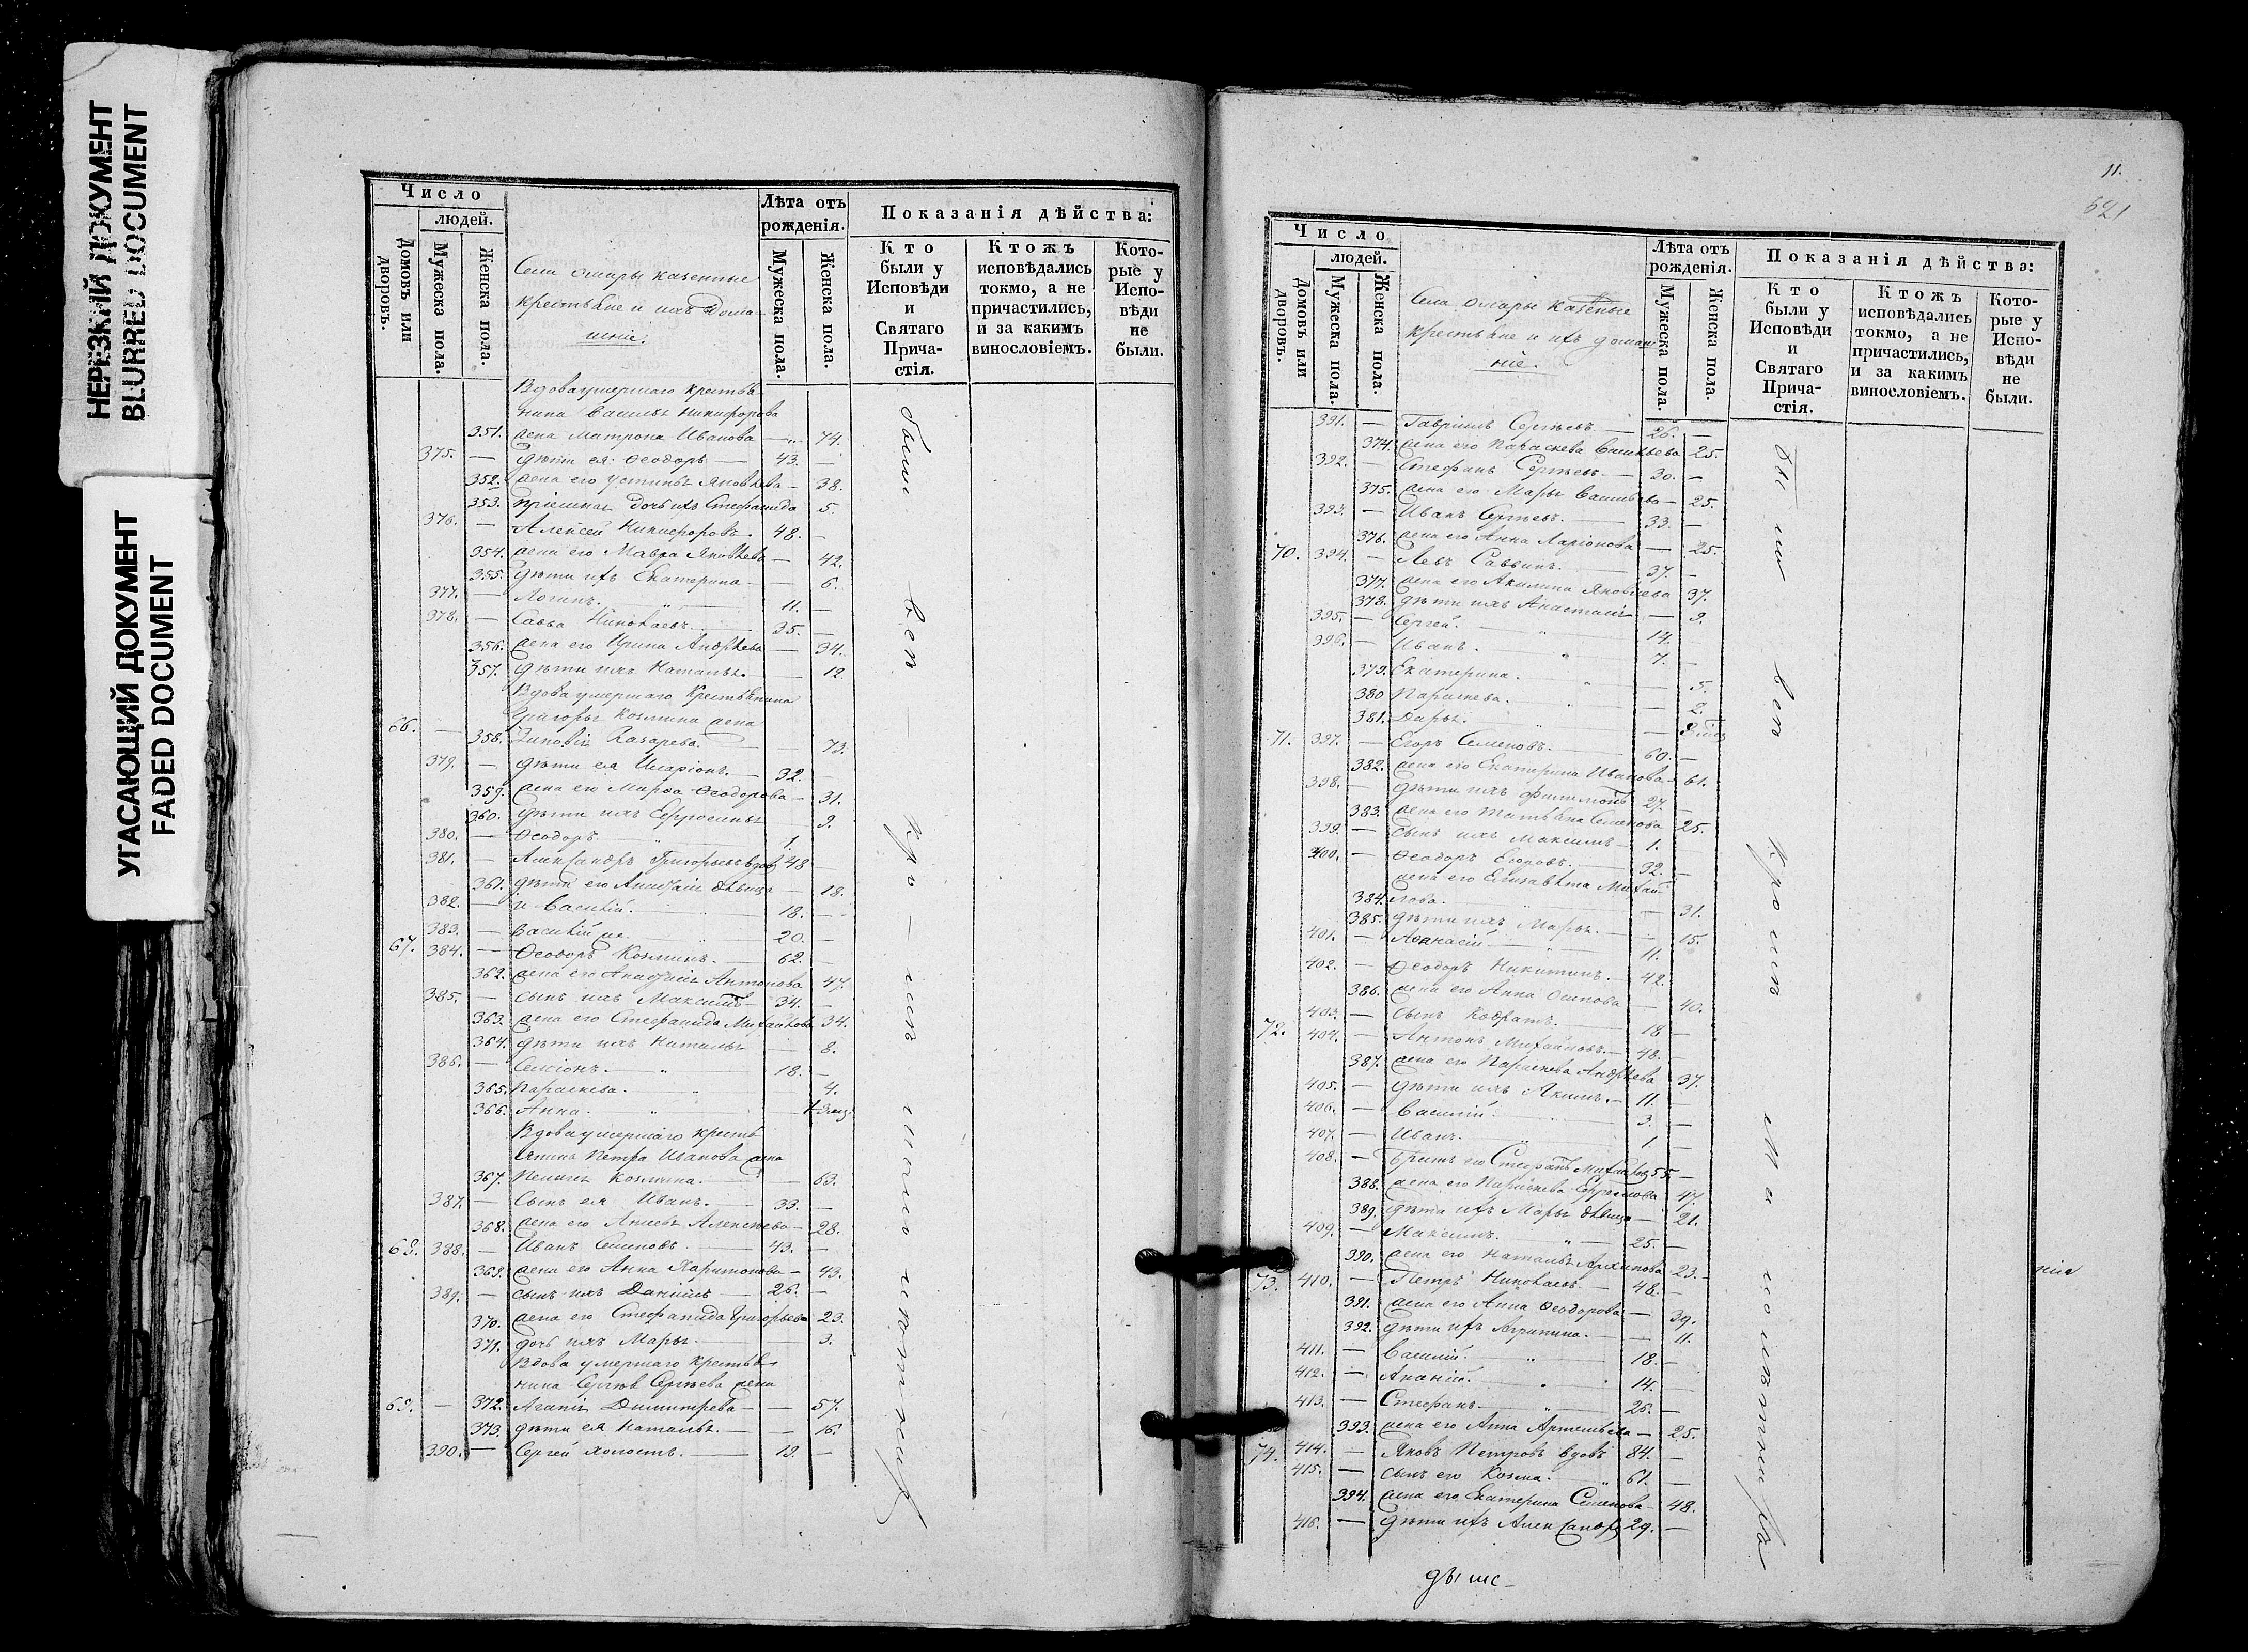 НЕРЕЗКИЙ ДОКУМЕНТ
BLURRED DOCUMENT
УГАСАЮЩИЙ ДОКУМЕНТ
FADED DOCUMENT
Число
людей.
Домовъ или дворовъ.
Мужеска пола.
Женска пола.
Села Омары казенные
крестьяне и ихъ дома-
шніе:
Лѣта отъ
рожденія.
Мужеска пола.
Женска пола.
Показанія дѣйства:
Кто
были у
Исповѣди
и
Святаго
Прича-
стія.
Ктожъ
исповѣдались
токмо, а не
причастились,
и за какимъ
винословіемъ.
Кото-
рые у
Испо-
вѣди
не
были.
Вдова умершаго крестья-
нина Василья Никифорова
351. жена Матрона Иванова — 74.
375. — дѣти ея: Ѳеодоръ — 43. —
352. жена его Устинья Яковлева — 38.
353. дочь ихъ Стефанида 5.
376. — Алексей Никифоровъ. 48. —
354. жена его Мавра Яковлева — 42.
355. дѣти ихъ Екатерина — 6.
377. — Логинъ. „ 11. —
378. — Савва Николаевъ. 35. —
356. жена его Ирина Андреева — 34.
357. дѣти ихъ Наталья. — 12.
Вдова умершаго крестьянина
Григорья Козмина жена
66. — 358. Зиновія Назарева. — 73.
379. — дѣти ея Иларіонъ. 32. —
359. жена его Марѳа Ѳеодорова — 31.
360. дѣти ихъ Ефросинья — 9.
380. — Ѳеодоръ. „ 1. —
381. — Александръ Григорьевъ вдов 48 —
361. дѣти его Анастасія дѣвица — 18.
382. — и Василій. „ 18. —
383. — Василій же. „ 20. —
67. 384. — Ѳеодоръ Козминъ. — 62. —
362. жена его Анастасія Антонова 47.
385. — сынъ ихъ Максимъ — 34. —
363. жена его Стефанида Михайлова 34.
364. дѣти ихъ Наталья — 8.
386. — Семіонъ. „ 18. —
365. Параскева. „ 4.
366. Анна. „
Вдова умершаго кресть
янина Петра Иванова жена
367. Пелагея Козмина. — 63.
387. — Сынъ ея Иванъ. — 33. —
368. жена его Алексѣева — 28.
68. 388. — Иванъ Семеновъ. — 43. —
369. жена его Анна Харитонова — 43.
389. — сынъ ихъ Даніилъ — 26. —
370. жена его Стефанида Григорьева 23.
371. дочь ихъ Марья. — 3.
Вдова умершаго крестья-
нина Сергѣя Сергѣева жена
69. — 372. Агапія Димитрева — 57.
373. дѣти ея Наталья. — 16.
390. — Сергей холостъ. — 19. —
были
вси
Число
людей.
Домовъ или дворовъ.
Мужеска пола.
Женска пола.
Села Омары казенные
крестьяне и ихъ домаш
ніе.
Лѣта отъ
рожденія.
Мужеска пола.
Женска пола.
Показанія дѣйства:
Кто
были у
Исповѣди
и
Святаго
Прича-
стія.
Ктожъ
исповѣдались
токмо, а не
причастились,
и за какимъ
винословіемъ.
Кото-
рые у
Испо-
вѣди
не
были.
11.
391. — Гавріилъ Сергѣевъ. — 26. —
374. жена его Параскева Васильева 25.
392. — Стефанъ Сергѣевъ. — 30. —
375. жена его Марья Васильева — 25.
393. — Иванъ Сергѣевъ. — 33. —
376. жена его Анна Ларіонова — 25.
70. 394. — Левъ Саввинъ. — 37. —
377. жена его Акилина Яковлева 37.
378. дѣти ихъ Анастасія — 9.
395. — Сергей. „ 14. —
396. — Иванъ. „ 7. —
379. Екатерина. „ — 5.
380 Параскева. „ — 2.
381. Дарья. „
71. 397. — Егоръ Семеновъ. — 60. —
382. жена его Екатерина Иванова — 61.
398. — дѣти ихъ Филимонъ 27. —
383. жена его Татьяна Семенова 25.
399. — сынъ ихъ Максимъ — 1. —
400. — Ѳеодоръ Егоровъ. — 32. —
жена его Елизавета Михай
384. лова. „ — 31.
385. дѣти ихъ Марья. — 15.
401. — Аѳанасій — 11. —
402. — Ѳеодоръ Никитинъ. — 42. —
386. жена его Анна Осипова — 40.
403. — сынъ Кодратъ. — 18 —
72. 404. — Антонъ Михайловъ. — 48. —
387. жена его Параскева Андреева 37.
405. — дѣти ихъ Акимъ. — 11. —
406. — Василій „ 3. —
407. — Иванъ. „ 1. —
408. — Братъ его Стефанъ Михайлов 55. —
388. жена его Параскева Ефремова 47.
389. дѣти ихъ Марья дѣвица — 21.
409. — Максимъ. „ 25. —
390. жена его Наталья Архипова 23. —
73. 410. — Петръ Николаевъ. — 48. —
391. жена его Анна Ѳеодорова — 39.
392. дѣти ихъ Агрипина. — 11.
411. — Василій. „ 18. —
412. — Ананій. „ 14. —
413. — Стефанъ. „ 26. —
393. жена его Анна Артемьева — 25.
74. 414. — Яковъ Петровъ вдовъ 84. —
415. — сынъ его Козма. „ 61. —
394. жена его Екатерина Семенова — 48.
416. — дѣти ихъ Александр 29. —
были
вси